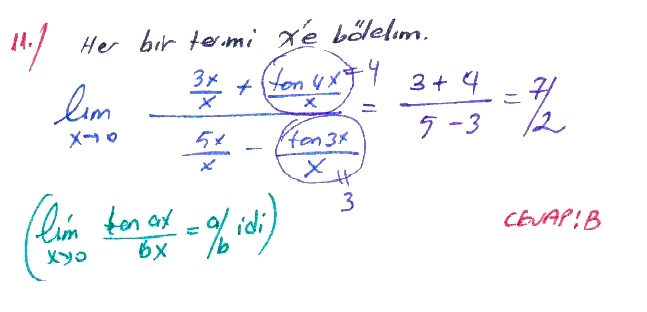 11.) Her bir terimi x'e bölelim.
lim x→0 (3x/x + tan4x/x) / (5x/x - tan3x/x) = (3+4)/(5-3) = 7/2
= 4
= 3
(lim x→0 tan ax / bx = a/b idi)
CEVAP: B